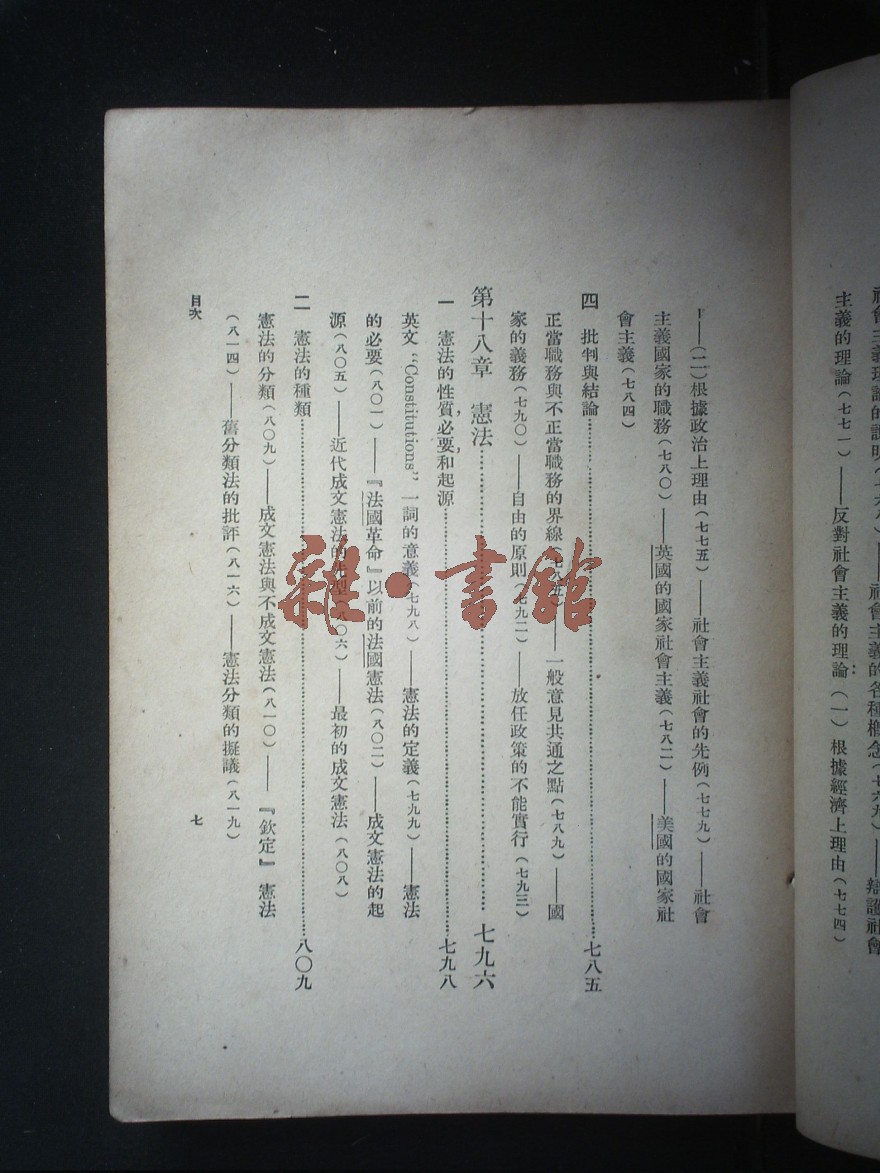 主義的理論(七七一)——反對社會主義的理論(一)根據經濟上理由(七七四)
——(二)根據政治上理由(七七五)——社會主義社會的先例(七七九)——社會
主義國家的職務(七八〇)——英國的國家社會主義(七八二)——美國的國家社
會主義(七八四)
四 批判與結論……七八五
正當職務與不正當職務的界線——一般意見共通之點(七八九)——國
家的義務(七九〇)——自由的原則(七九二)——放任政策的不能實行(七九三)
第十八章 憲法……七九六
一 憲法的性質,必要,和起源……七九八
英文“Constitutions”一詞的意義(七九八)——憲法的定義(七九九)——憲法
的必要(八〇一)——『法國革命』以前的法國憲法(八〇二)——成文憲法的起
源(八〇五)——近代成文憲法的先型(八〇六)——最初的成文憲法(八〇八)
二 憲法的種類……八〇九
憲法的分類(八〇九)——成文憲法與不成文憲法(八一〇)——『欽定』憲法
(八一四)——舊分類法的批評(八一六)——憲法分類的擬議(八一九)
目次
七
雜·書館